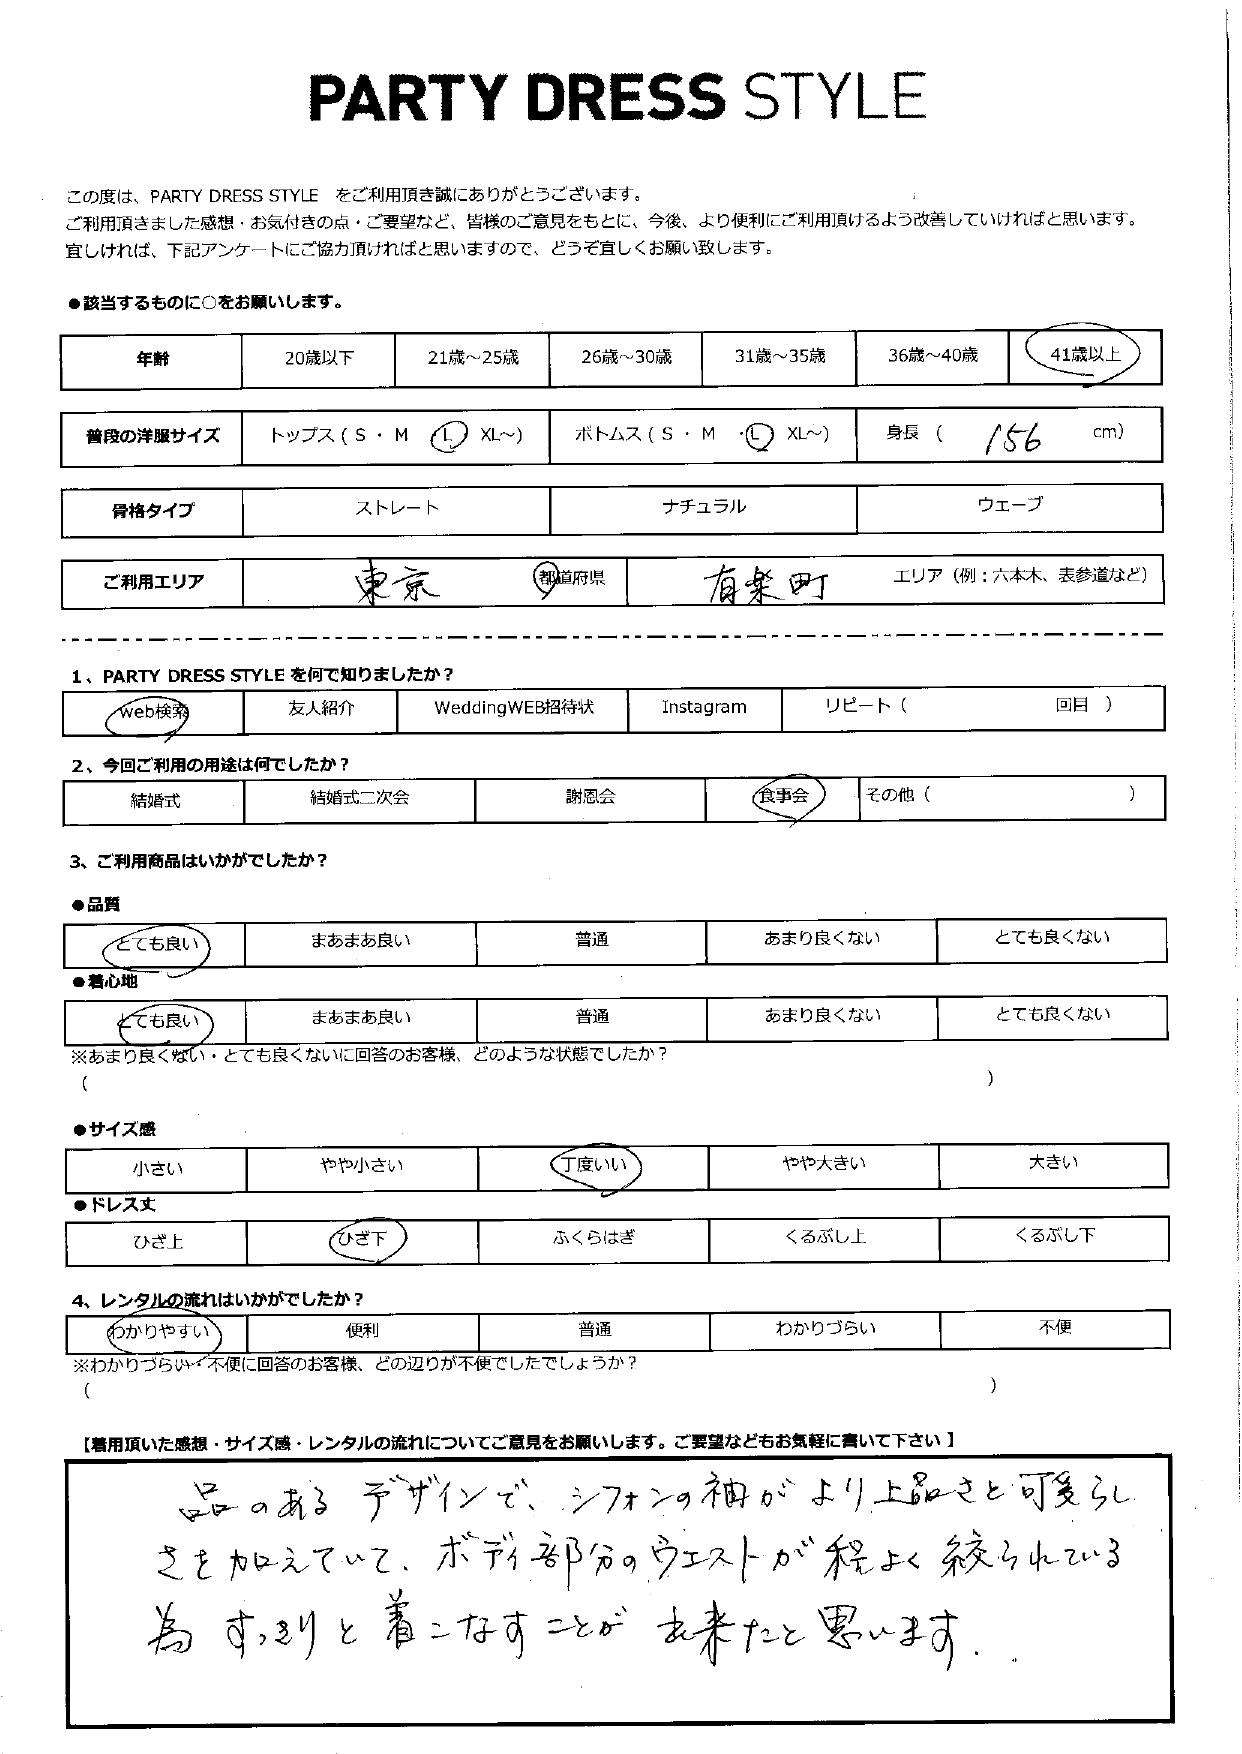 PARTY DRESS STYLE
この度は、PARTY DRESS STYLE をご利用頂き誠にありがとうございます。
ご利用頂きました感想・お気付きの点・ご要望など、皆様のご意見をもとに、今後、より便利にご利用頂けるよう改善していければと思います。
宜しければ、下記アンケートにご協力頂ければと思いますので、どうぞ宜しくお願い致します。
●該当するものに○をお願いします。
年齢 20歳以下 21歳～25歳 26歳～30歳 31歳～35歳 36歳～40歳 41歳以上
普段の洋服サイズ トップス ( S ・ M L XL～) ボトムス ( S ・ M ・L XL～) 身長 ( 156 cm)
骨格タイプ ストレート ナチュラル ウェーブ
ご利用エリア 東京 都道府県 有楽町 エリア（例：六本木、表参道など）
1、PARTY DRESS STYLE を何で知りましたか？
Web検索 友人紹介 WeddingWEB招待状 Instagram リピート ( 回目 )
2、今回ご利用の用途は何でしたか？
結婚式 結婚式二次会 謝恩会 食事会 その他 ( )
3、ご利用商品はいかがでしたか？
●品質
とても良い まあまあ良い 普通 あまり良くない とても良くない
●着心地
とても良い まあまあ良い 普通 あまり良くない とても良くない
※あまり良くない・とても良くないに回答のお客様、どのような状態でしたか？
( )
●サイズ感
小さい やや小さい 丁度いい やや大きい 大きい
●ドレス丈
ひざ上 ひざ下 ふくらはぎ くるぶし上 くるぶし下
4、レンタルの流れはいかがでしたか？
わかりやすい 便利 普通 わかりづらい 不便
※わかりづらい・不便に回答のお客様、どの辺りが不便でしたでしょうか？
( )
【着用頂いた感想・サイズ感・レンタルの流れについてご意見をお願いします。ご要望などもお気軽に書いて下さい】
品のあるデザインで、シフォンの袖がより上品さと可愛らし
さを加えていて、ボディ部分のウエストが程よく絞られている
為すっきりと着こなすことが出来たと思います.